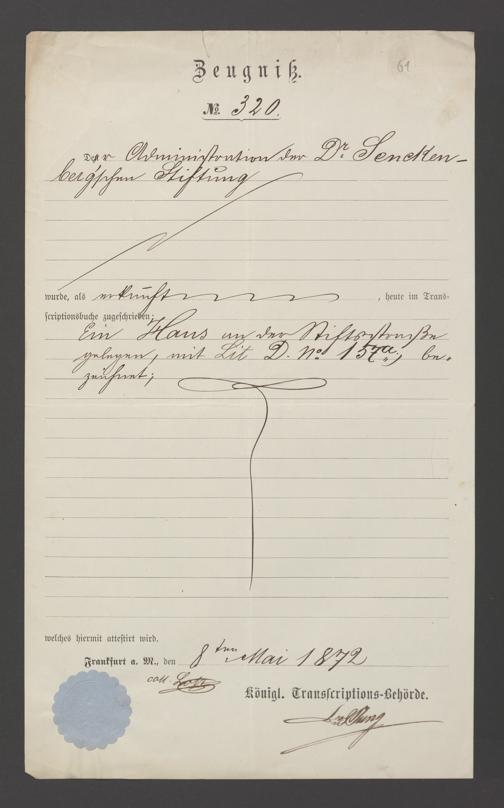 Zeugniß.
61
№ 320.
der Administration der Dr Sencken-
berg'schen Stiftung
wurde, als erkauft , heute im Trans-
scriptionsbuche zugeschrieben:
Ein Haus an der Stiftsstraße
gelegen, mit Lit D. No 157a, be-
zeichnet;
welches hiermit attestirt wird.
Frankfurt a. M., den 8ten Mai 1872
coll.
Königl. Transcriptions-Behörde.